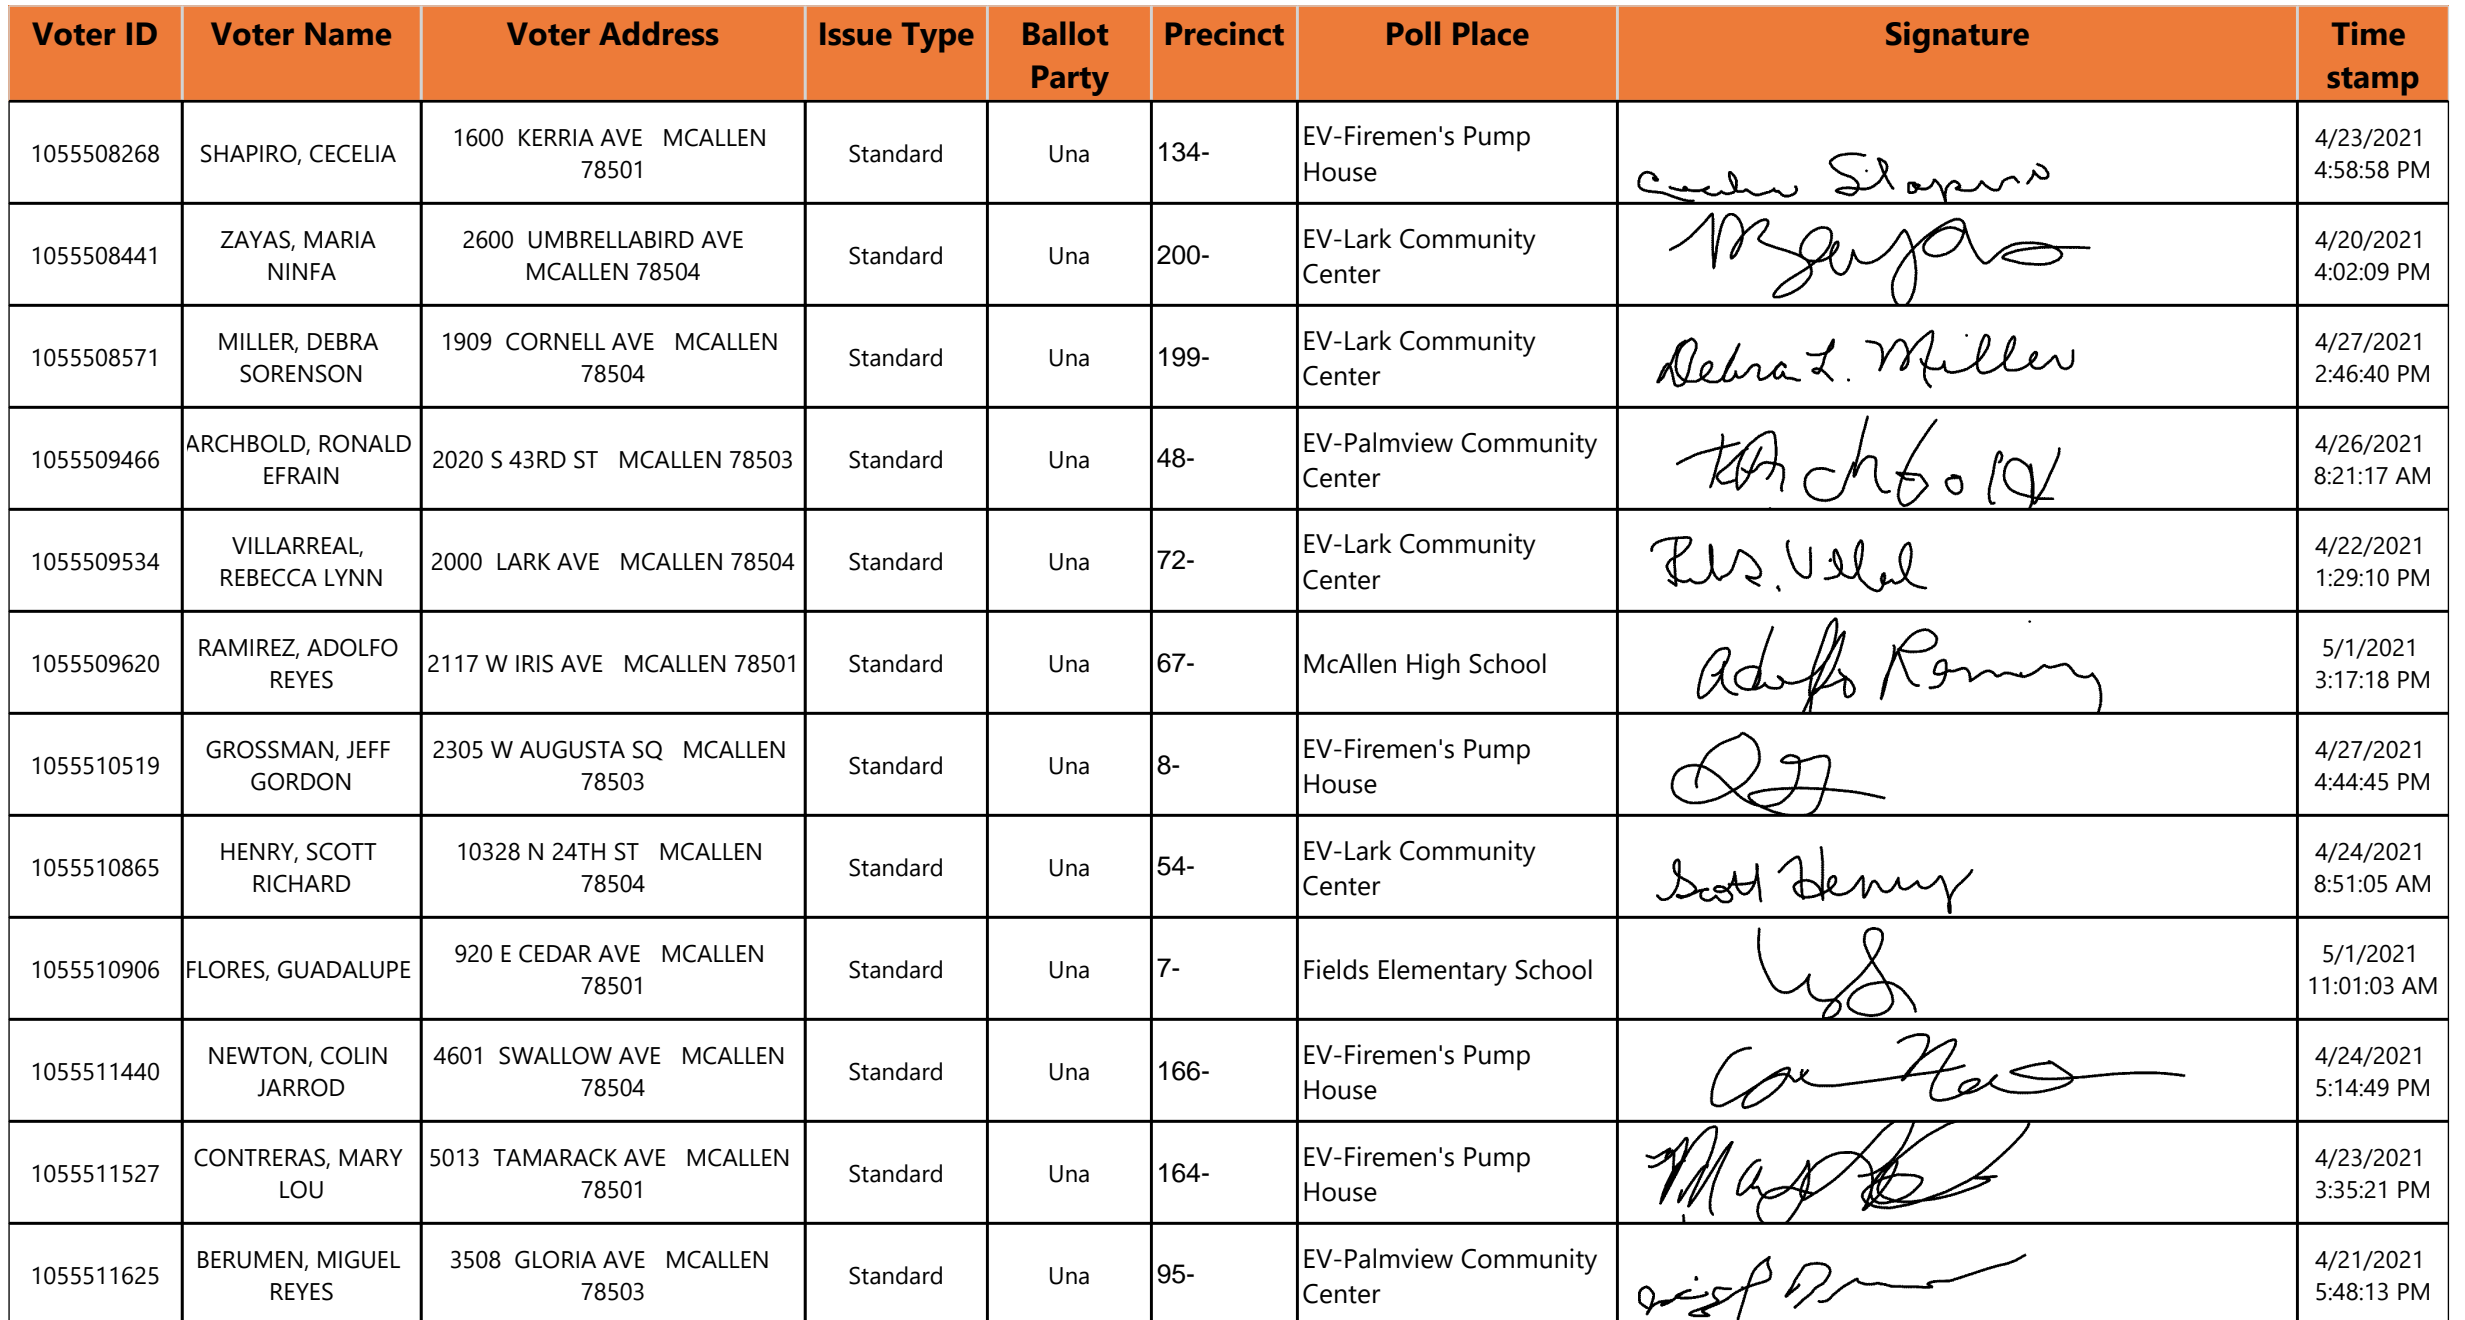 Voter ID Voter Name Voter Address Issue Type Ballot Party Precinct Poll Place Signature Time stamp
1055508268 SHAPIRO, CECELIA 1600 KERRIA AVE MCALLEN 78501 Standard Una 134- EV-Firemen's Pump House Cecelia Shapiro 4/23/2021 4:58:58 PM
1055508441 ZAYAS, MARIA NINFA 2600 UMBRELLABIRD AVE MCALLEN 78504 Standard Una 200- EV-Lark Community Center 4/20/2021 4:02:09 PM
1055508571 MILLER, DEBRA SORENSON 1909 CORNELL AVE MCALLEN 78504 Standard Una 199- EV-Lark Community Center Debra L. Miller 4/27/2021 2:46:40 PM
1055509466 ARCHBOLD, RONALD EFRAIN 2020 S 43RD ST MCALLEN 78503 Standard Una 48- EV-Palmview Community Center 4/26/2021 8:21:17 AM
1055509534 VILLARREAL, REBECCA LYNN 2000 LARK AVE MCALLEN 78504 Standard Una 72- EV-Lark Community Center 4/22/2021 1:29:10 PM
1055509620 RAMIREZ, ADOLFO REYES 2117 W IRIS AVE MCALLEN 78501 Standard Una 67- McAllen High School Adolfo Ramirez 5/1/2021 3:17:18 PM
1055510519 GROSSMAN, JEFF GORDON 2305 W AUGUSTA SQ MCALLEN 78503 Standard Una 8- EV-Firemen's Pump House 4/27/2021 4:44:45 PM
1055510865 HENRY, SCOTT RICHARD 10328 N 24TH ST MCALLEN 78504 Standard Una 54- EV-Lark Community Center Scott Henry 4/24/2021 8:51:05 AM
1055510906 FLORES, GUADALUPE 920 E CEDAR AVE MCALLEN 78501 Standard Una 7- Fields Elementary School 5/1/2021 11:01:03 AM
1055511440 NEWTON, COLIN JARROD 4601 SWALLOW AVE MCALLEN 78504 Standard Una 166- EV-Firemen's Pump House 4/24/2021 5:14:49 PM
1055511527 CONTRERAS, MARY LOU 5013 TAMARACK AVE MCALLEN 78501 Standard Una 164- EV-Firemen's Pump House 4/23/2021 3:35:21 PM
1055511625 BERUMEN, MIGUEL REYES 3508 GLORIA AVE MCALLEN 78503 Standard Una 95- EV-Palmview Community Center 4/21/2021 5:48:13 PM